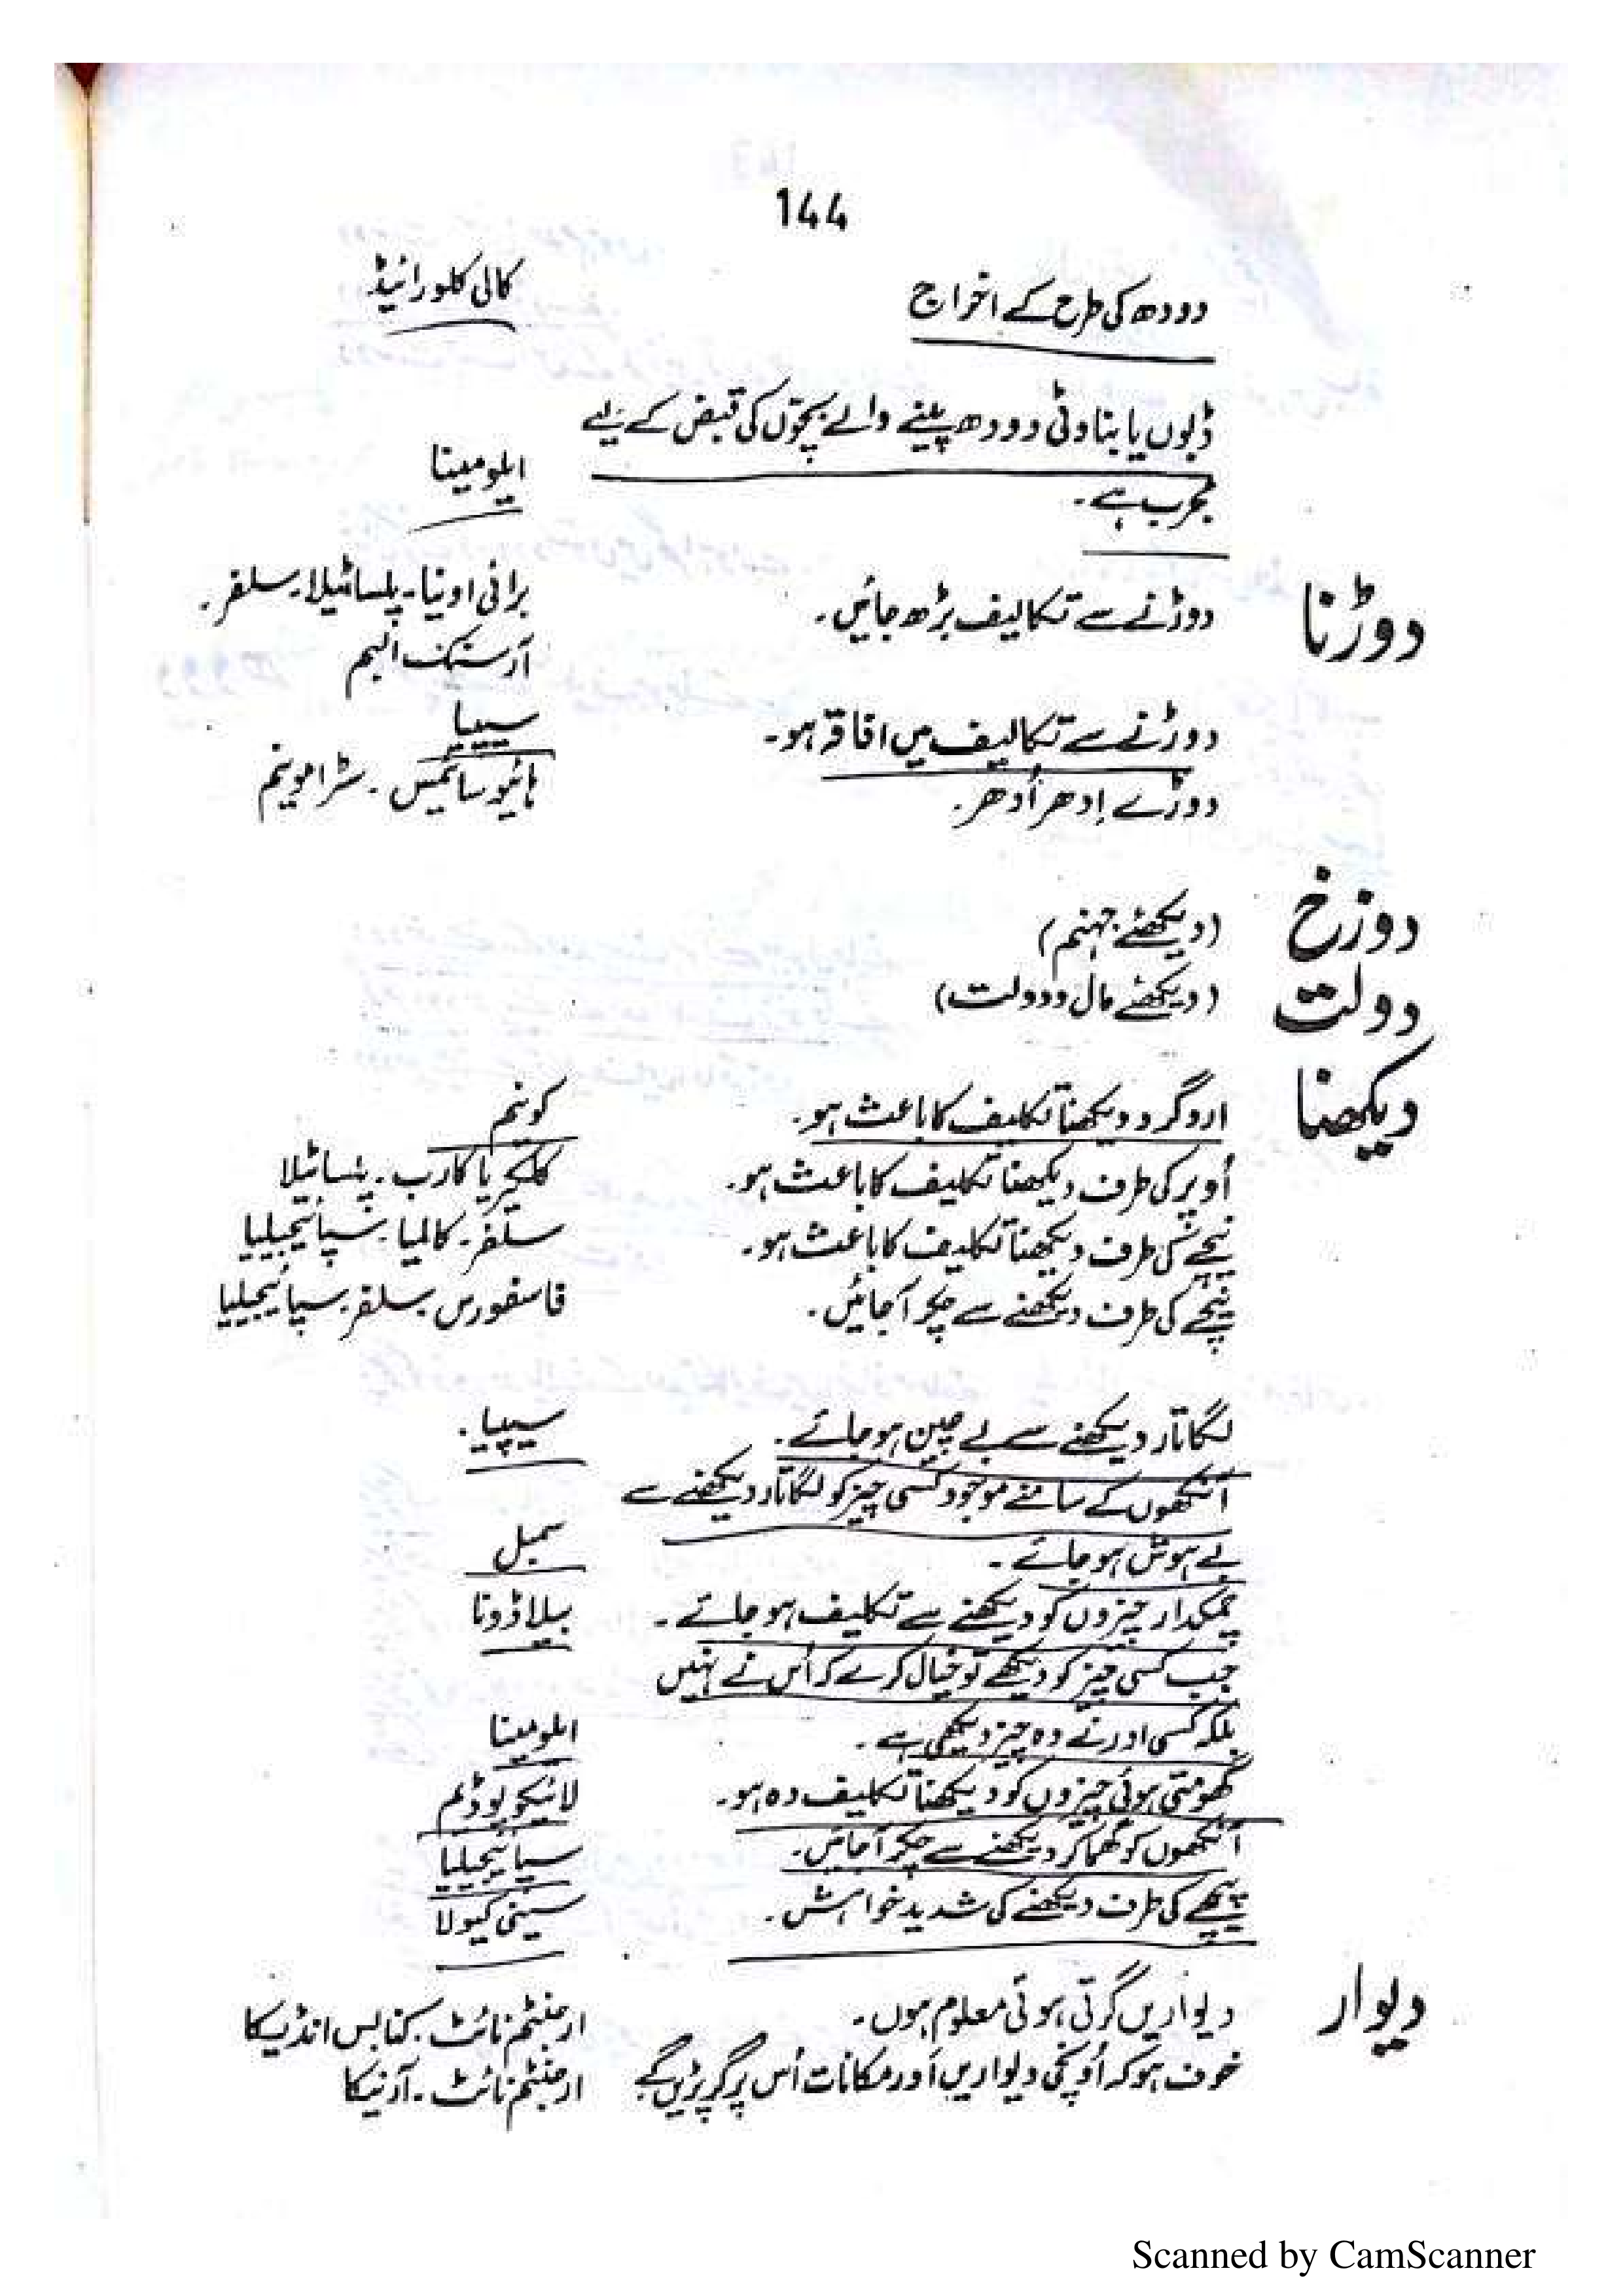 144
دودھ کی طرح کے اخراج کالی کلورائیڈ
ڈبوں یا بناوٹی دودھ پلینے والے بچوّں کی قبض کے لیے
مجرب ہے۔ ایلومینا
دوڑنا دوڑنے سے تکالیف بڑھ جائیں۔ برائی اونیا۔ پلساٹیلا۔ سلفر۔
آرسنک البم
دوڑنے سے تکالیف میں افاقہ ہو۔ سیپیا
دوڑے اِدھر اُدھر۔ ہائیوسائمیس۔ سٹرامونیم
دوزخ (دیکھئے جہنم)
دولت (دیکھئے مال و دولت)
دیکھنا اردگرد دیکھنا تکلیف کا باعث ہو۔ کونیم
اُوپر کی طرف دیکھنا تکلیف کا باعث ہو۔ کلکیریا کارب۔ پلساٹیلا
نیچے کی طرف دیکھنا تکلیف کا باعث ہو۔ سلفر۔ کالمیا۔ سپائیجیلیا
نیچے کی طرف دیکھنے سے چکر آجائیں۔ فاسفورس۔ سلفر۔ سپائیجیلیا
لگاتار دیکھنے سے بے چین ہو جائے۔ سیپیا۔
آنکھوں کے سامنے موجود کسی چیز کو لگاتار دیکھنے سے
بے ہوش ہو جائے۔ سمبل
چمکدار چیزوں کو دیکھنے سے تکلیف ہو جائے۔ بیلاڈونا
جب کسی چیز کو دیکھے تو خیال کرے کہ اُس نے نہیں
بلکہ کسی اور نے وہ چیز دیکھی ہے۔ ایلومینا
گھومتی ہوئی چیزوں کو دیکھنا تکلیف دہ ہو۔ لائیکوپوڈیم
آنکھوں کو گھما کر دیکھنے سے چکر آجائیں۔ سپائیجیلیا
پیچھے کی طرف دیکھنے کی شدید خواہش۔ سینی کیولا
دیوار دیواریں گرتی ہوئی معلوم ہوں۔ ارجنٹم نائٹ۔ کنابس انڈیکا
خوف ہو کہ اُونچی دیواریں اور مکانات اُس پر گر پڑیں گے ارجنٹم نائٹ۔ آرنیکا
Scanned by CamScanner